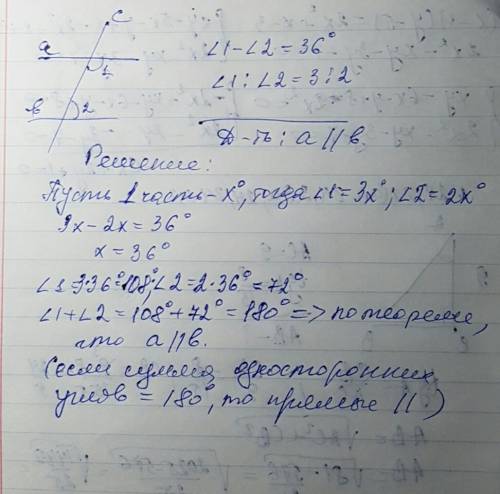 c
a
1
в
2
∠1-∠2=36°
∠1:∠2=3:2
Д-ть: a∥в.
Решение:
Пусть 1 часть - x°, тогда ∠1=3x°; ∠2=2x°
3x-2x=36°
x=36°
∠1=3·36°=108°; ∠2=2·36°=72°
∠1+∠2=108°+72°=180° => по теореме,
что a∥в.
(если сумма односторонних
углов = 180°, то прямые ||.)